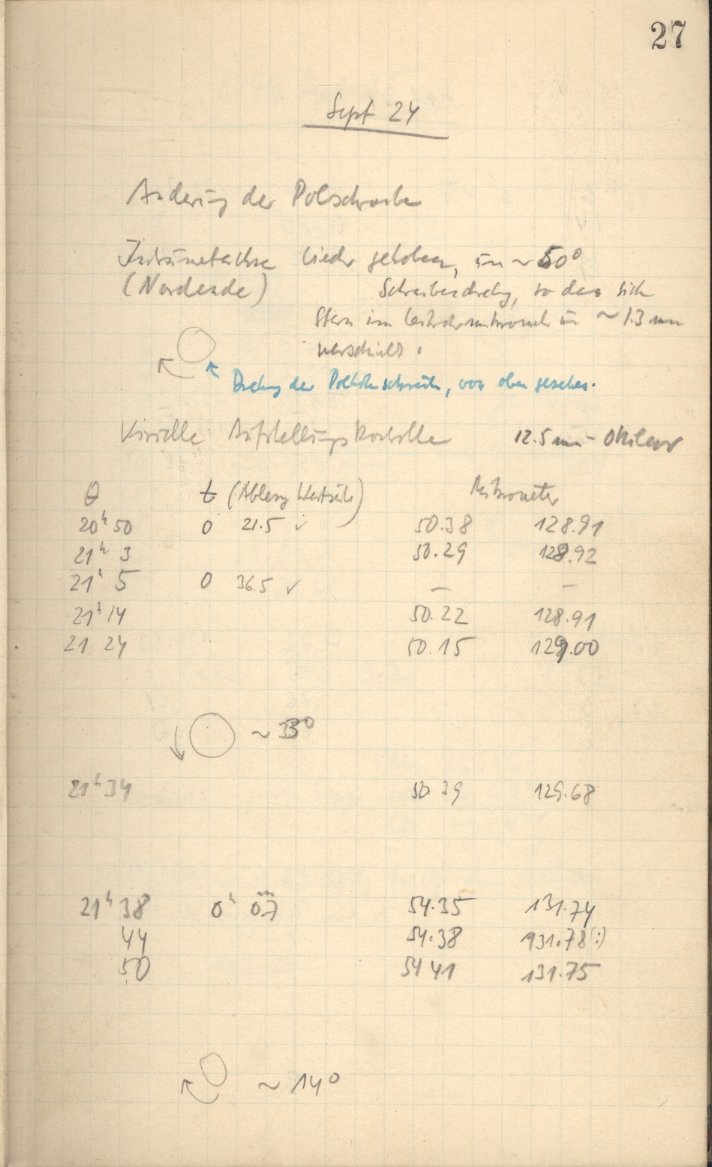 27
Sept 24
Änderung der Polschraube
gehoben, um ~ 50°
(Nordende) Schraubendrehg, so dass sich
Stern im um ~ 1.3 mm
verschiebt.
Drehung der Polhöhenschraube, von oben gesehen.
Visuelle Aufstellungskontrolle 12.5 mm - Okular
θ t (Ablesg Westseite) Mikrometer
20ʰ 50 0 21.5 ✓ 50.38 128.91
21ʰ 3 50.29 128.92
21ʰ 5 0 36.5 ✓ – –
21ʰ 14 50.22 128.91
21 24 50.15 129.00
~ 33°
21ʰ 34 50 29 129.68
21ʰ 38 0ʰ 0.7 54.35 131.74
44 54.38 131.78 (:)
50 54 41 131.75
~ 14°